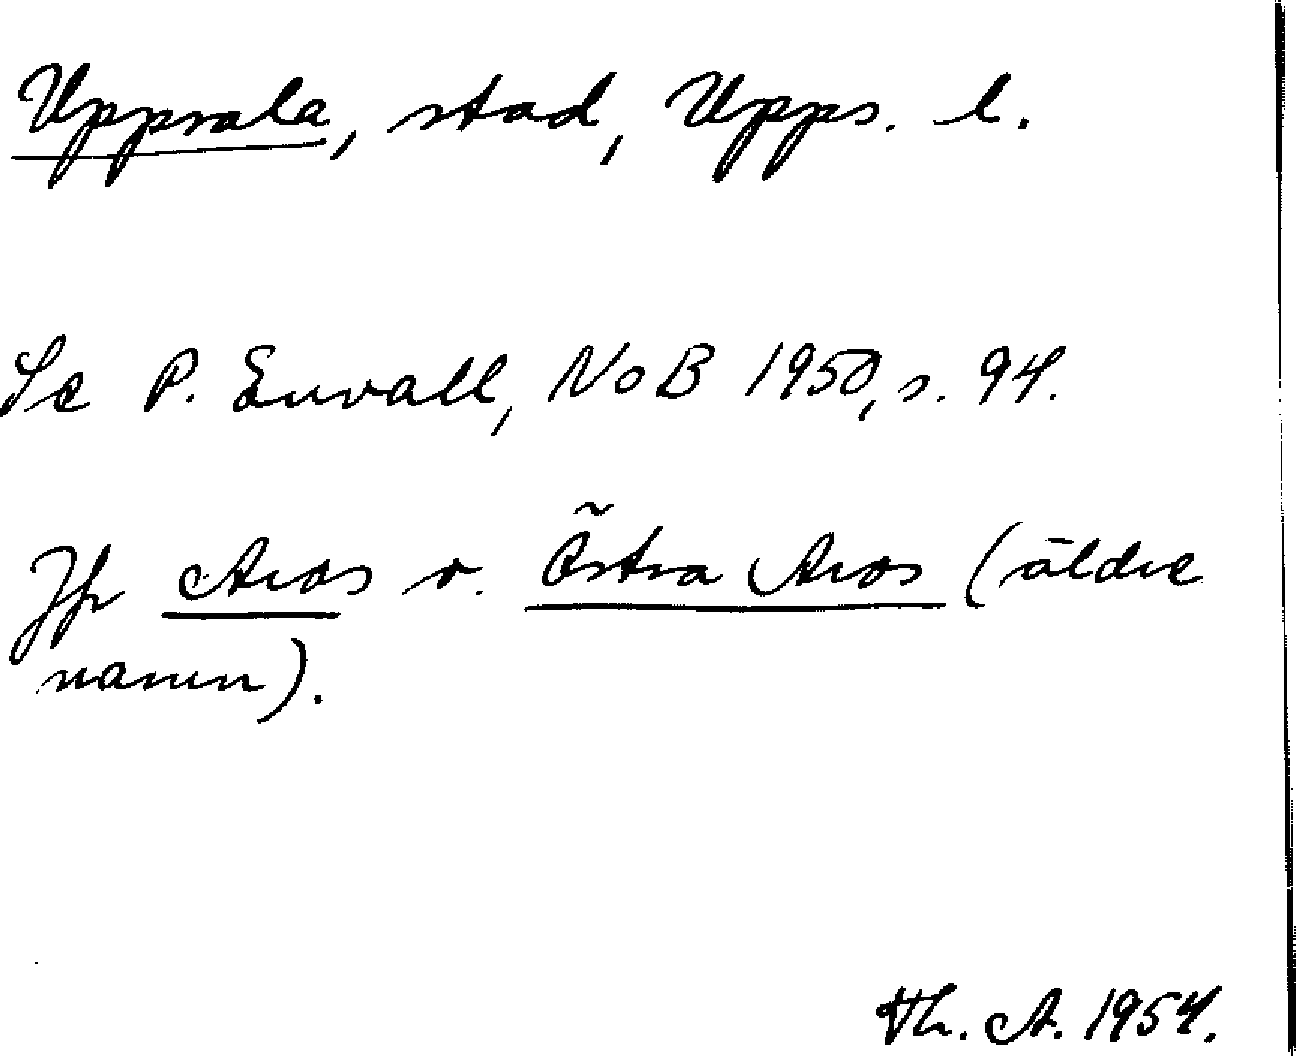 Uppsala, stad, Upps. l.
Se P. Envall, NoB 1950, s. 94.
Jfr Aros o. Östra Aros (äldre
namn).
Th. A. 1954.